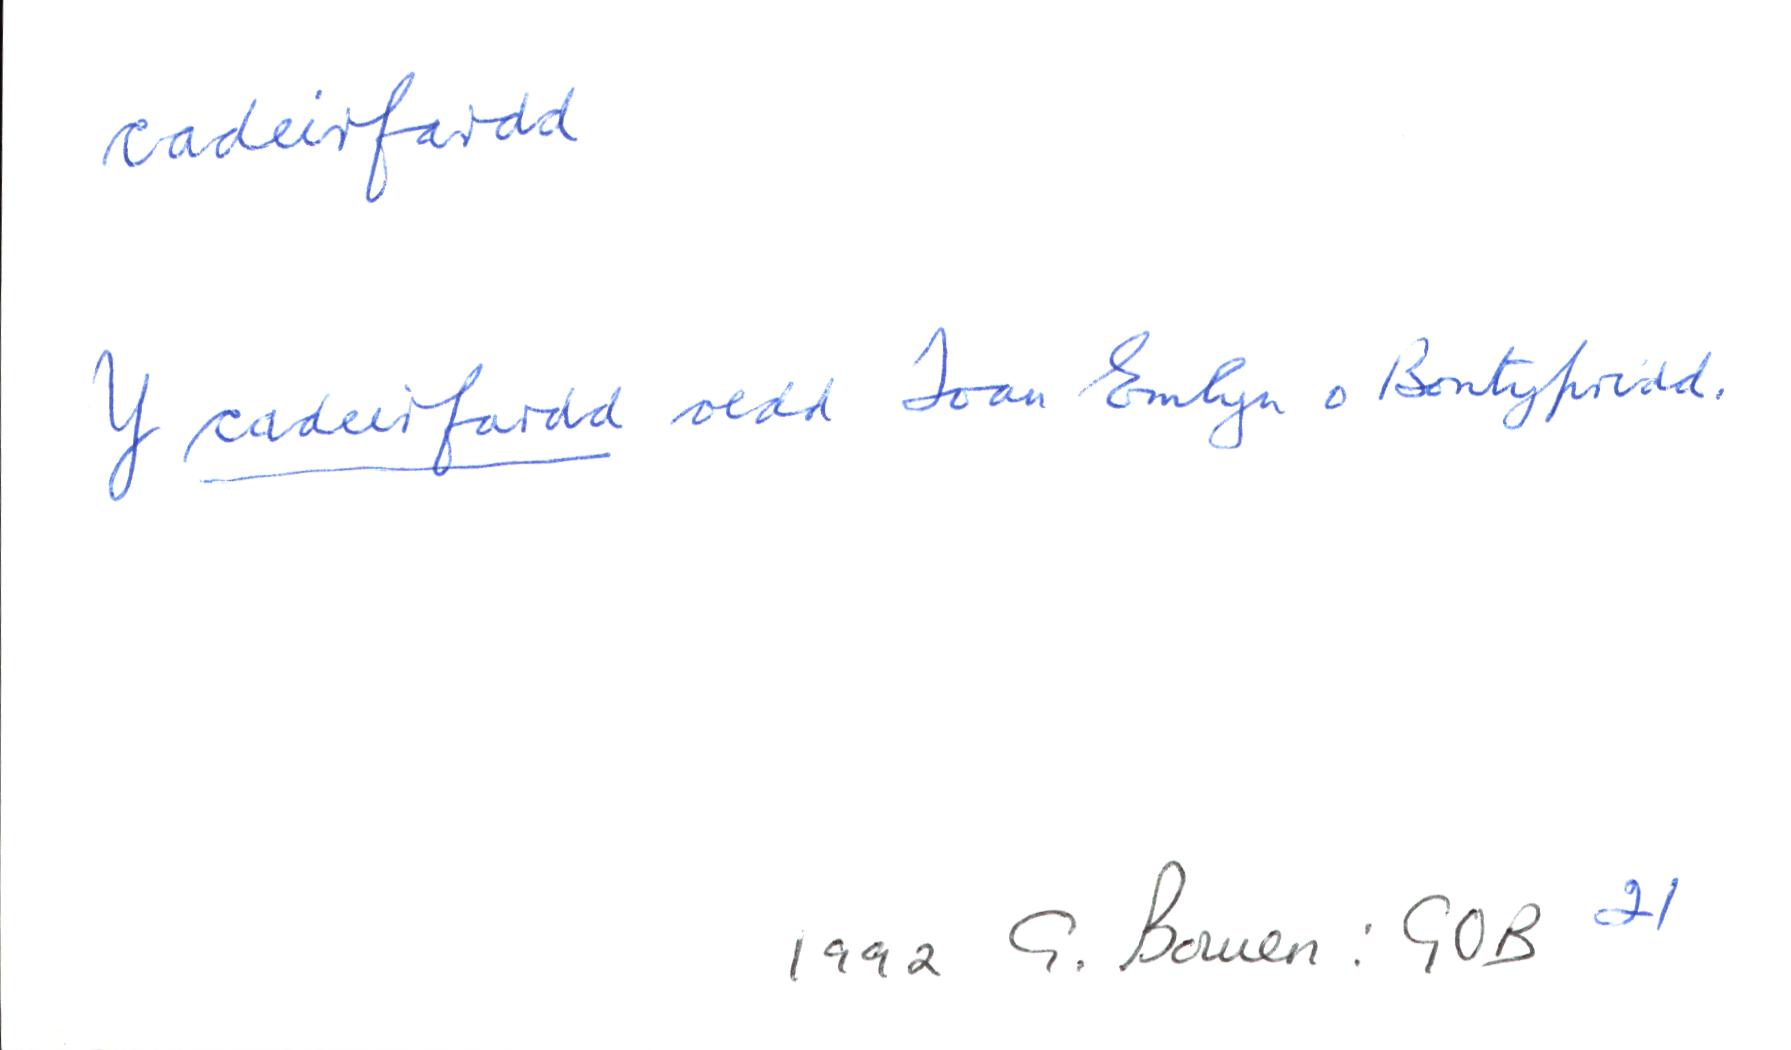 cadeirfardd
Y cadeirfardd oedd Ioan Emlyn o Bontypridd.
1992 G. Bowen: GOB 21